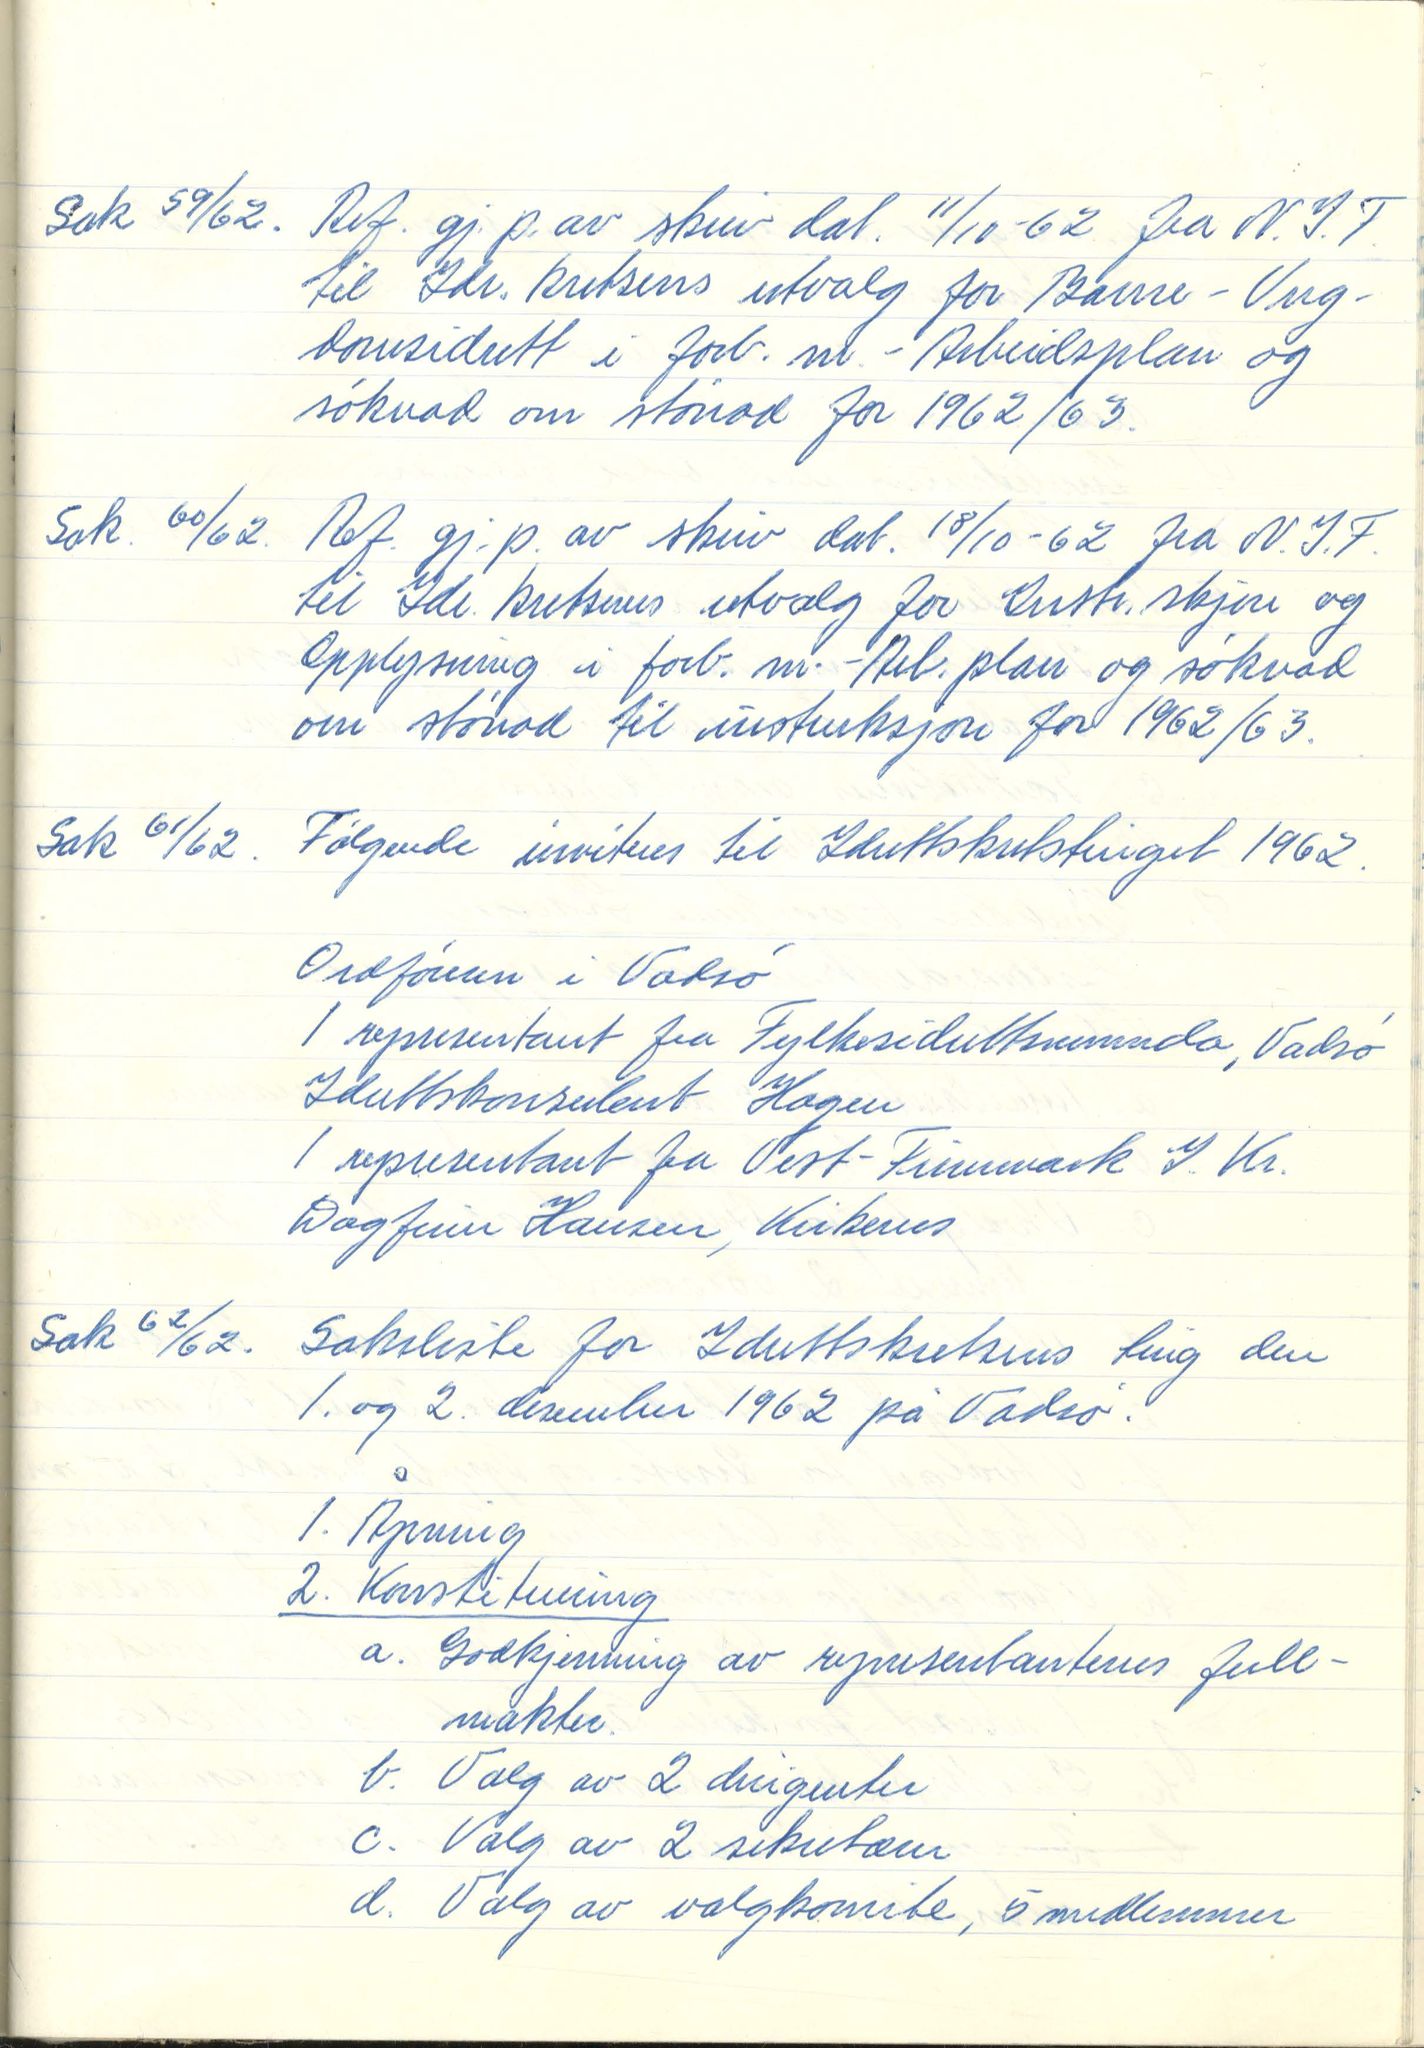 Sak 59/62. Ref. gj. p. av skriv dat. 11/10-62 fra N.I.F.
til Idr. kretsens utvalg for Barne- Ung-
domsidrett i forb. m. - Arbeidsplan og
söknad om stönad for 1962/63.
Sak. 60/62. Ref. gj. p. av skriv dat. 18/10-62 fra N.I.F.
til Idr. kretsenes utvalg for Instr. skjon og
Opplysning i forb. m. - Arb. plan og söknad
om stönad til instruksjon for 1962/63.
Sak 61/62. Følgende inviteres til Idrettskretstinget 1962.
Ordföreren i Vadsö
1 representant fra Fylkesidrettsnemnda, Vadsö
Idrettskonsulent Hagen
1 representant fra Vest-Finnmark I. Kr.
Dagfinn Hansen, Kirkenes
Sak 62/62. Saksliste for Idrettskretsens ting den
1. og 2. desember 1962 på Vadsö.
1. Åpning
2. Konstituering
a. Godkjenning av representantenes full-
makter.
b. Valg av 2 dirigenter
c. Valg av 2 sekretærer
d. Valg av valgkomite, 5 medlemmer